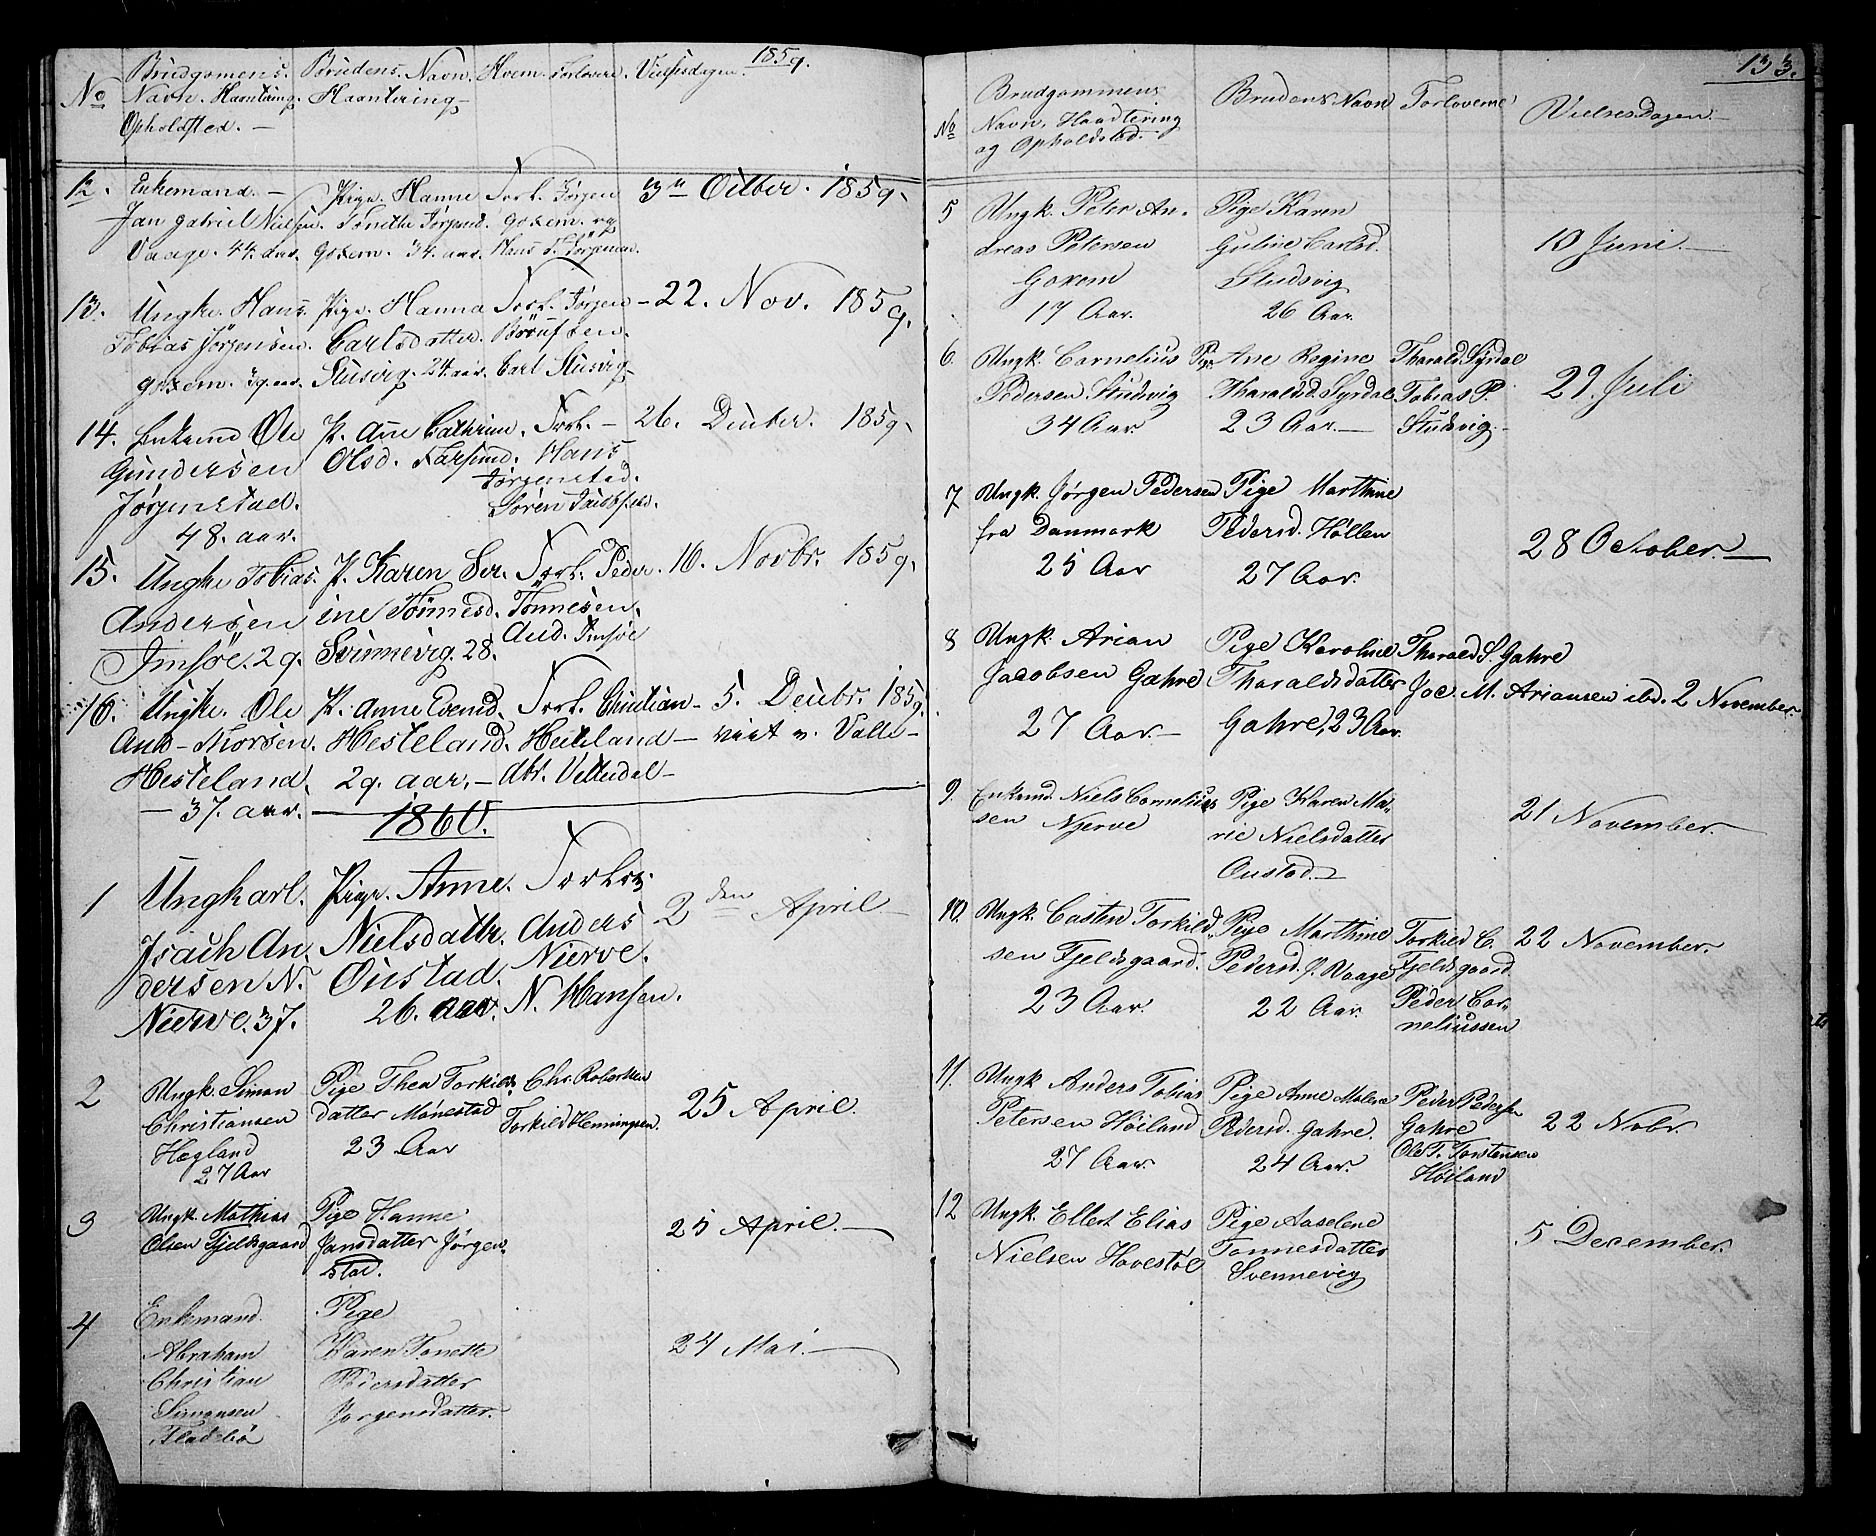 1859.
No
Brudgomens Navn. Haantering. Opholdsted. —
Brudens. Navn. Haantering
Hvem. Forlovere.
Vielsesdagen.
12.
Enkemand. —
Jan Gabriel Nielsen.
Vaage. 44. aar.
Pige. Hanne
Tonette Jørgensd.
Goxem. 34. aar.
Forl. Jørgen
Goxem. og
Hans T. Jørgensen.
3 Octber. 1859.
13.
Ungke. Hans
Tobias Jörgensen.
goxem. 39. aar.
Pige. Hanna
Carlsdatter.
Stusvig. 24. aar.
Forl. Jørgen
Carl Stusvig
22. Nov. 1859.
14.
Enkemd Ole
Gundersen
Jørgenstad.
48. aar.
P. Ane Cathrine.
Olsd. Farsund.
Forl. —
Hans
Jørgenstad.
Sören
26. Decber. 1859.
15.
Ungke Tobias.
Andersen
Imsöe. 29.
P. Karen Ser-
ine Tönnesd.
Svinnevig. 28.
Forl. Peder.
Tönnesen.
And. Imsöe
16. Novbr. 1859.
16.
Ungke. Ole
Hesteland.
— 37. aar. —
P. Anne Evensd.
Hesteland.
29. aar. —
Forl. Christian
Hesteland —
5. Decbr. 1859.
viet v. Valle —
1860.
1
Ungkarl.
Isach An.
dersen N.
Nierve. 37.
Pige. Anne.
Nielsdattr.
Oustad.
26. aar.
Forlov.
Anders
Nierve.
N. Hansen.
2den April —
2
Ungk. Simon
Christiansen
Hægland
27 Aar
Pige Thea Torkilds
datter Mønestad
23 Aar
Chr. Robertsen
Torkild Henningsen.
25 April.
3
Ungk. Mathias
Olsen Fjeldsgaard
Pige Hanne
Jansdatter Jørgen-
stad.
25 April. —
4
Enkemand.
Abraham
Christian
Simonsen
Fladebö
Pige
Karen Tonette
Pedersdatter
Jørgensdatter.
24 Mai. —
133.
No
Brudgommens
Navn, Haandtering
og Opholdsted.
Brudens Navn
Forloverne
Vielsesdagen. —
5
Ungk. Peter An-
dreas Petersen
Goxem
17 Aar.
Pige Karen
Guline Carlsd.
Studsvig
26 Aar.
10 Juni. —
6.
Ungk. Cornelius
Pedersen Studsvig
34 Aar.
Pige Ane Regine
Tharaldsd. Syrdal
23 Aar. —
Tharald Syrdal
Tobias P.
Studsvig. —
29. Juli
7
Ungk. Jørgen Pedersen
fra Danmark
25 Aar
Pige Marthine
Pedersd. Høllen
27 Aar.
28 October. —
8
Ungk. Arian
Jacobsen Gahre
27 Aar. —
Pige Karoline
Tharaldsdatter
Gahre, 23 Aar.
Tharald S. Gahre
Joc. M. Ariansen ibd.
2 November.
9.
Enkemd. Niels Cornelius
sen Njerve
Pige Karen Ma-
rie Nielsdatter
Oustad. —
21 November. —
10.
Ungk. Casten Torkild-
sen Fjeldsgaard.
23 Aar.
Pige Marthine
Pedersd. Vaage
22 Aar.
Torkild C.
Fjeldsgaard.
Peder Cor-
neliussen
22 November.
11.
Ungk Anders Tobias
Petersen Höiland
27 Aar.
Pige Anne Malene
Pedersd. Gahre.
24 Aar.
Peder Pedersen
Gahre
Ole T. Torstensen
Höiland
22 Nobr.
12
Ungk. Ellert Elias
Nielsen Havestøl
Pige Aaselene
Tønnesdatter
Svennevig
5 December.